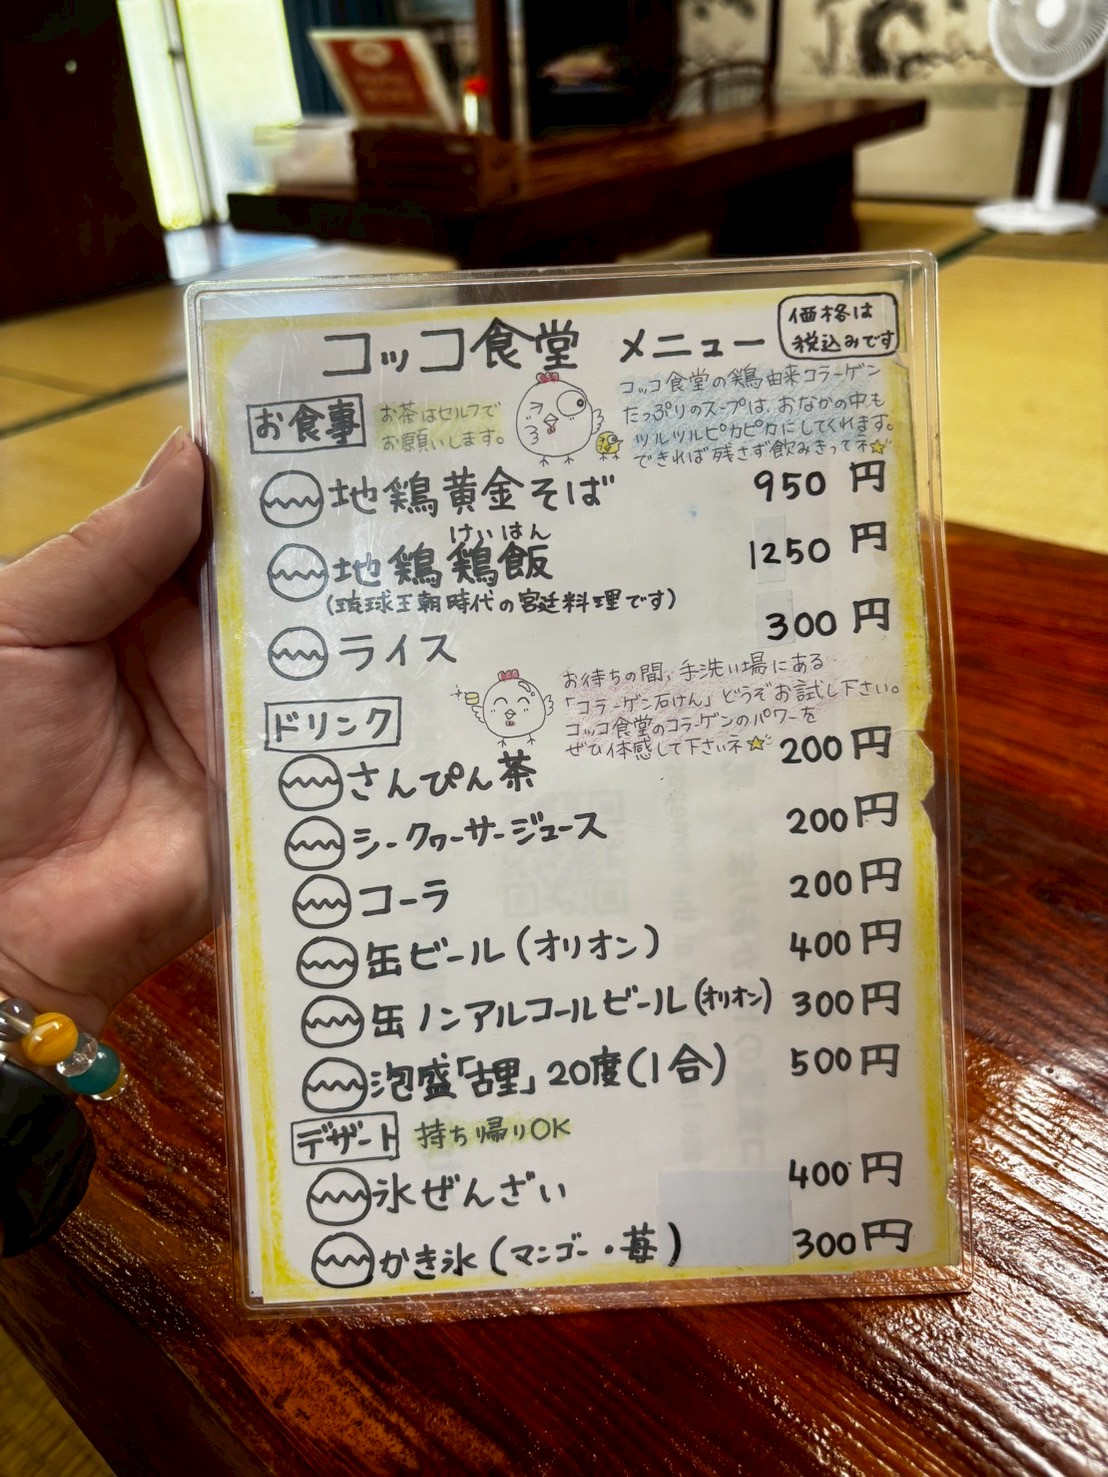 コッコ食堂 メニュー
価格は
税込みです
お食事
お茶はセルフで
お願いします。
コッコ食堂の鶏由来コラーゲン
たっぷりのスープは、おなかの中も
ツルツルピカピカにしてくれます。
できれば残さず飲みきってネ☆
地鶏黄金そば 950円
けいはん
地鶏鶏飯 1250円
(琉球王朝時代の宮廷料理です)
ライス 300円
お待ちの間、手洗い場にある
「コラーゲン石けん」どうぞお試し下さい。
コッコ食堂のコラーゲンのパワーを
ぜひ体感して下さいネ☆
ドリンク
さんぴん茶 200円
シークヮーサージュース 200円
コーラ 200円
缶ビール(オリオン) 400円
缶ノンアルコールビール(オリオン) 300円
泡盛「古里」20度(1合) 500円
デザート 持ち帰りOK
氷ぜんざい 400円
かき氷(マンゴー・苺) 300円